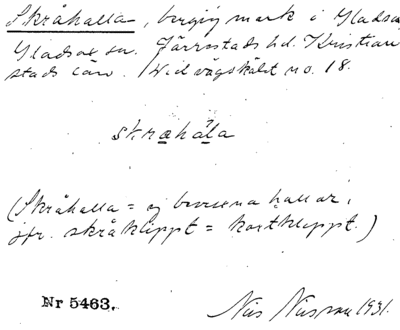 Skråhalla, bergig mark i Gladsa
Gladsax sn. Järrestads hd. Kristian
stads län. Vid vägskälet no. 18.
skrahala
(Skråhalla = ej bevuxna hallar,
jfr. skråklippt = kortklippt.)
Nr 5463.
Nils Nilsson 1931.